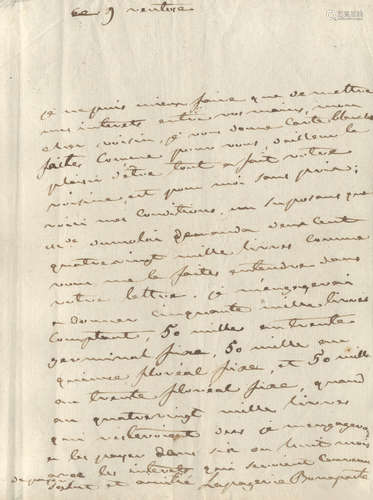 ce 9 ventose
je ne puis mieux faire que de mettre
mes interets entre vos mains, mon
cher voisin, je vous donne carte blanche
faites comme pour vous, d'ailleurs le
plaisir d'être tout a fait votre
voisine, est pour moi sans prix;
voici nos conditions, en suposant que
demanda deux cent
quatrevingt mille livres comme
vous me le faites entendre dans
votre lettre. je m'engagerai
a donner cinquante mille livres
comptant, 50 mille au trente
germinal fixe, 50 mille au
quinze floreal fixe, et 50 mille
au trente floreal fixe, quand
au quatrevingt mille livres
qui resteroient dus je m'engagerai
a les payer dans six ou huit mois
avec les interets qui seroient convenus
salut et amitié Lapagerie Bonaparte